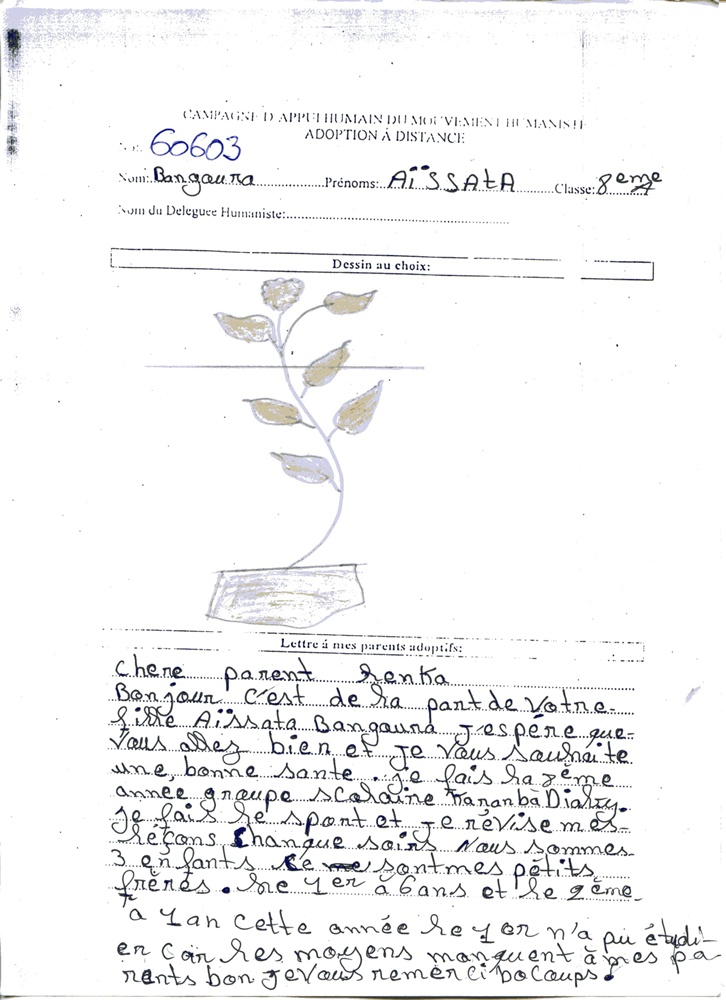 CAMPAGNE D'APPUI HUMAIN DU MOUVEMENT HUMANISTE
ADOPTION À DISTANCE
No: 60603
Nom: Bangoura Prénoms: Aïssata Classe: 8eme
Nom du Deleguee Humaniste:
Dessin au choix:
Lettre á mes parents adoptifs:
chere parent lenka
Bonjour c'est de la part de votre
fille Aïssata Bangoura j'espère que
vous allez bien et je vous souhaite
une, bonne sante. je fais la 8ème
année groupe scolaire
Je fais le sport et je révise mes
leçons chanque soirs Nous sommes
3 enfants ce sont mes pétits
frères. le 1er à 6ans et le 2ème
à 1an cette année le 1er n'a pu étudi-
er car les moyens manquent à mes pa
rents bon je vous remerci bocoups.